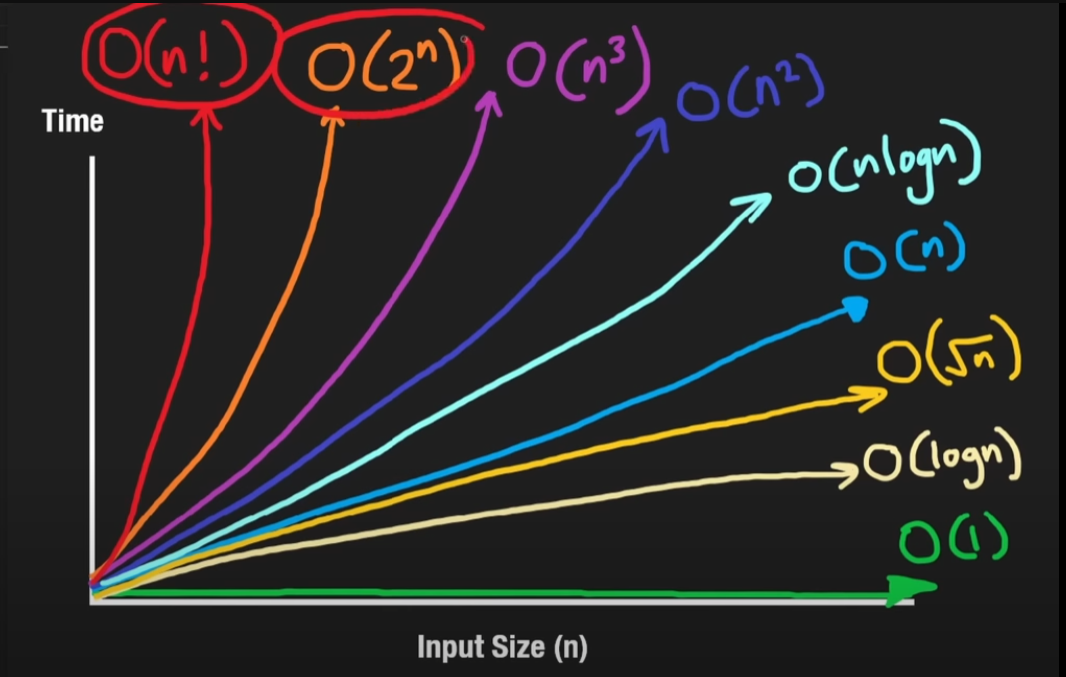 O(n!) O(2ⁿ) O(n³)
O(n²)
Time
O(nlogn)
O(n)
O(√n)
O(logn)
O(1)
Input Size (n)